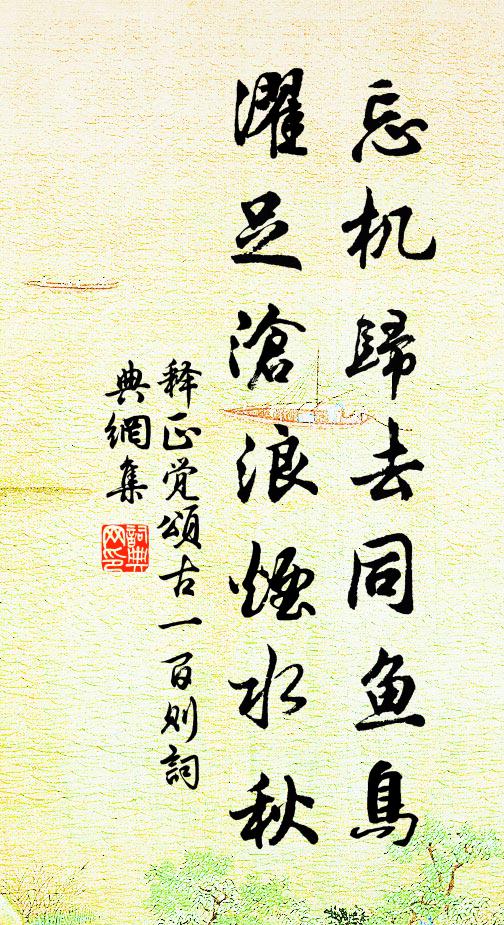 忘机歸去同鱼鳥
濯足滄浪煙水秋
释正觉頌古一百则詞
典網集
詞典网印